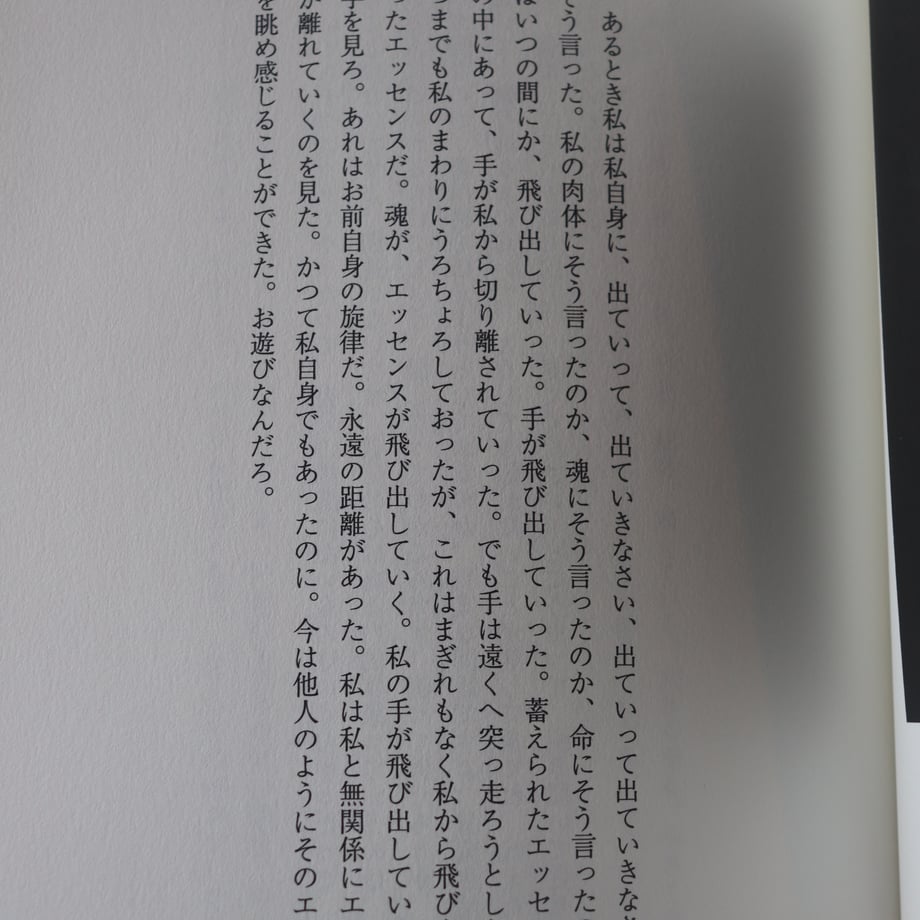 あるとき私は私自身に、出ていって、出ていきなさい、出ていって出ていきな
そう言った。私の肉体にそう言ったのか、魂にそう言ったのか、命にそう言った
はいつの間にか、飛び出していった。手が飛び出していった。蓄えられたエッセ
の中にあって、手が私から切り離されていった。でも手は遠くへ突っ走ろうとし
つまでも私のまわりにうろちょろしておったが、これはまぎれもなく私から飛び
ったエッセンスだ。魂が、エッセンスが飛び出していく。私の手が飛び出してい
手を見ろ。あれはお前自身の旋律だ。永遠の距離があった。私は私と無関係にエ
が離れていくのを見た。かつて私自身でもあったのに。今は他人のようにそのエ
を眺め感じることができた。お遊びなんだろ。